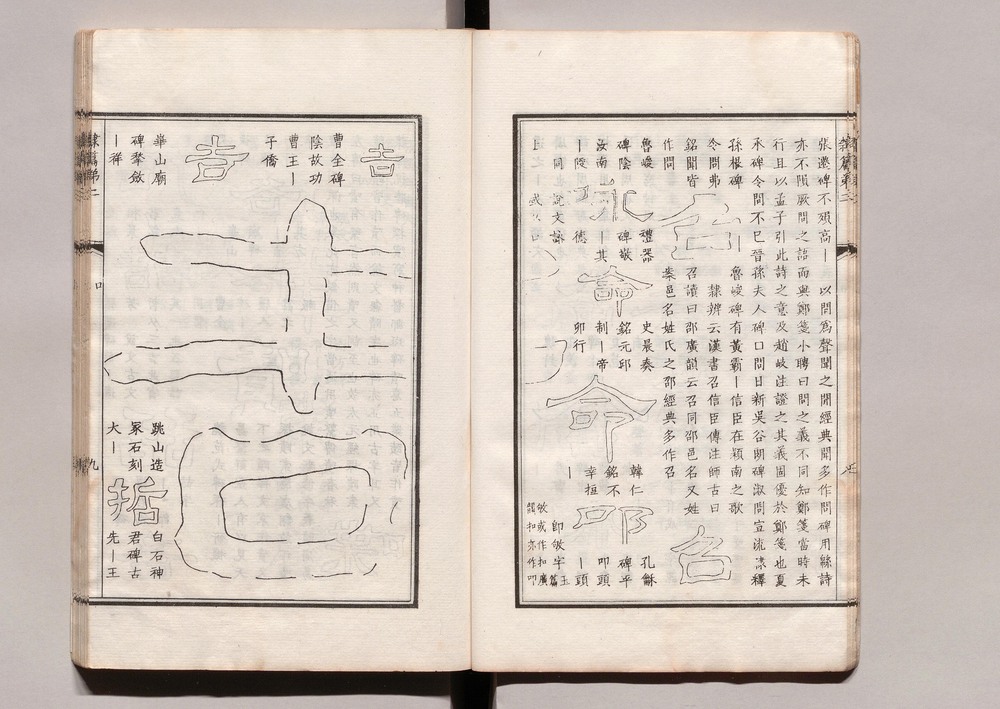 張遷碑不殞高丨以問為聲聞之聞經典聞多作問碑用緜詩
亦不隕厥問之語而與鄭箋小聘曰問之義不同知鄭箋當時未
行且以孟子引此詩之意及趙岐注證之其義固優於鄭箋也夏
承碑令問不已晉孫夫人碑口問日新吳谷朗碑淑問宣流
孫根碑
令問弗
銘聞皆
作問
召
魯峻碑有黃霸丨信臣在穎南之歌
隸辨云漢書召信臣傳注師古曰
召讀曰邵廣韻云召同邵邑名又姓
邑名姓氏之邵經典多作召
召
魯峻
碑陰
汝南
丨陵
咏
禮器
碑敬
丨其
德
同說文詠
命
史晨奏
銘元邱
制丨帝
卯行
命
韓仁
銘不
幸抇
丨
叩
孔龢
碑平
叩頭
丨頭
吉
曹全碑
陰故功
曹王丨
子僑
吉
華山廟
碑犂斂
丨祥
吉
跳山造
冢石刻
大丨
哲
白石神
君碑古
先丨王
隸篇第二
口
九